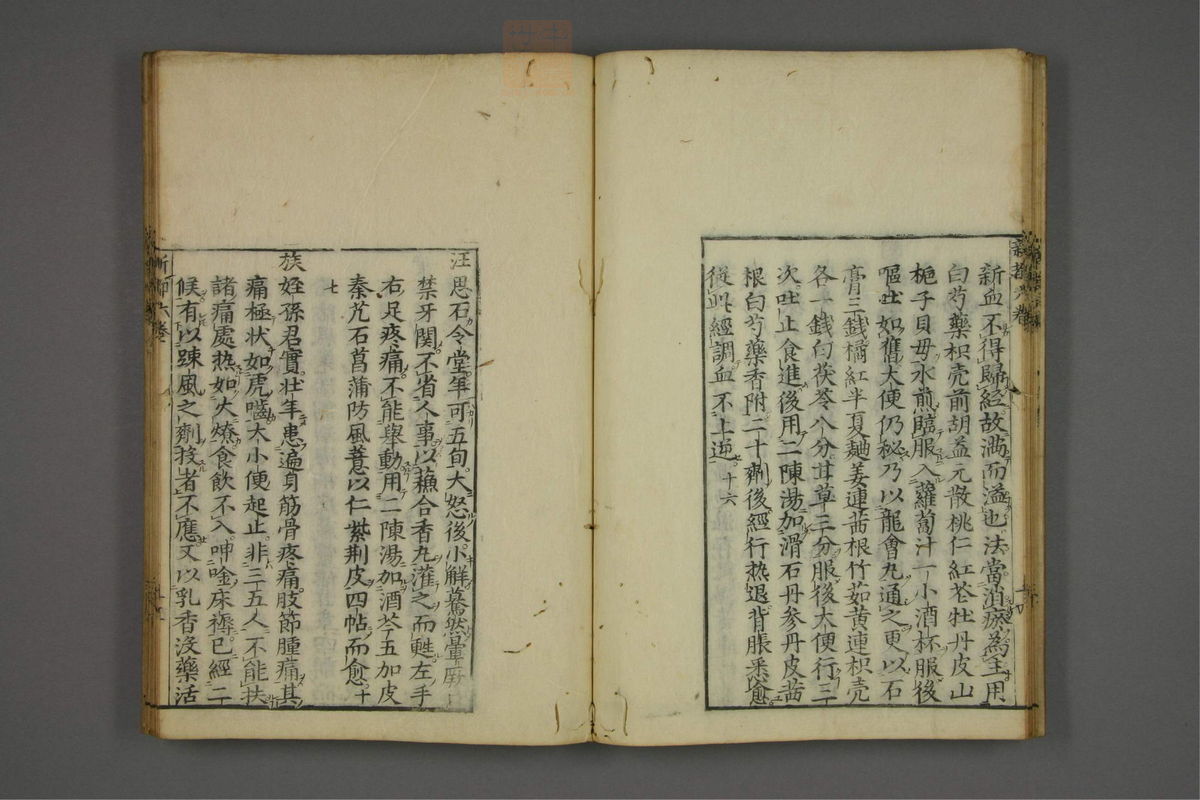 新都六卷
新血不得歸經故滿而溢也法當消瘀為主用
白芍藥枳壳前胡益元散桃仁紅花牡丹皮山
梔子貝母水煎臨服入蘿蔔汁一小酒杯服後
嘔吐如舊大便仍秘乃以龍會丸通之更以石
膏三錢橘紅半夏麯姜連茜根竹茹黃連枳壳
各一錢白茯苓八分甘草三分服後大便行三
次吐止食進後用二陳湯加滑石丹參丹皮茜
根白芍藥香附二十劑後經行热退背脹悉愈
從此經調血不上逆十六
汪思石令堂年可五旬大怒後小解驀然暈厥
禁牙関不省人事以蘓合香丸灌之而甦左手
右足疼痛不能舉動用二陳湯加酒芩五加皮
秦艽石菖蒲防風薏以仁紫荆皮四帖而愈十
七
族姪孫君實壮年患遍身筋骨疼痛肢節腫痛其
痛極状如虎嚙大小便起止非三五人不能扶
諸痛處热如火燎食飲不入呻吟床褥已經二
候有以踈風之劑投者不應又以乳香没藥活